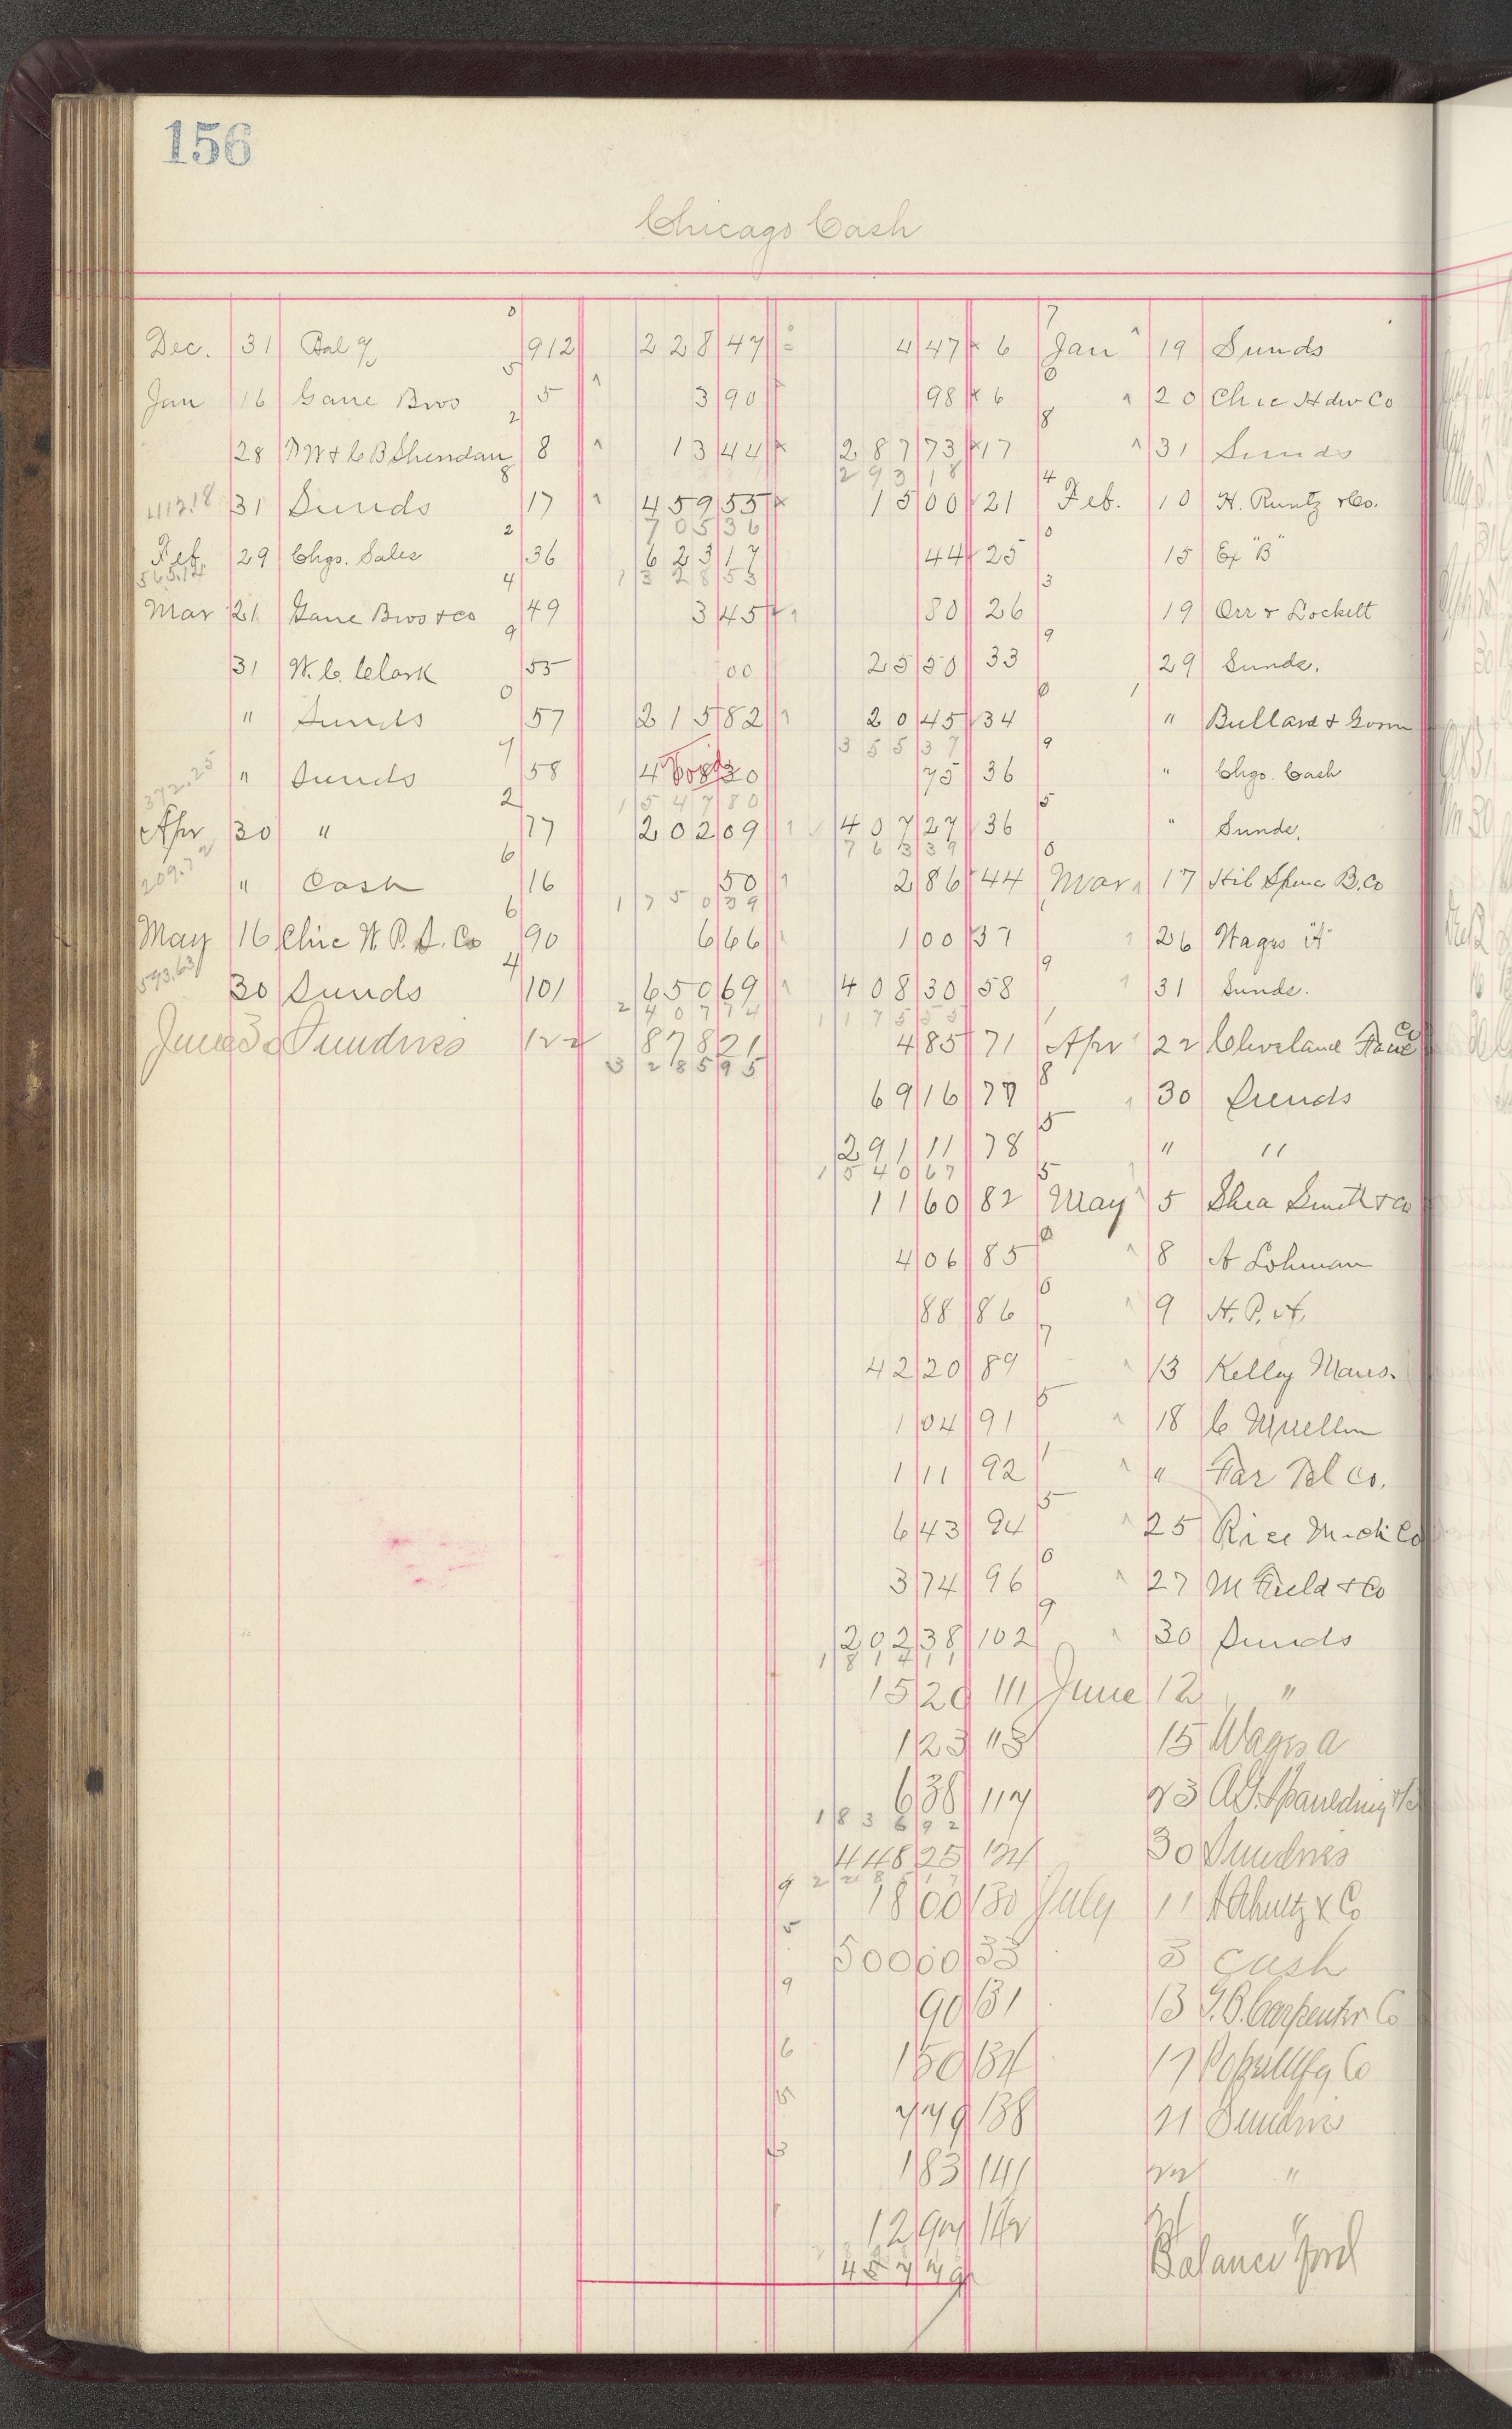 156
Chicago Cash
Dec. 31 Bal 912 228 47 4 47 6 Jan 19 Sunds
Jan 16 Gane Bros 5 3 90 98 6 20 Chic Hdw Co
28 & C B Sheridan 8 13 44 287 73 17 31 Sunds
293 18
412.18 31 Sunds 17 459 55 15 00 21 Feb. 10 H. Runtz & Co.
705 36
Feb 29 Chgs. Sales 36 623 17 44 25 15 Ex "B"
1328 53
Mar 21 Gane Bros & Co 49 3 45 80 26 19 Orr & Lockett
31 W. C. Clark 55 00 25 50 33 29 Sunds.
" Sunds 57 215 82 20 45 34 " Bullard &
355 37
372.25 " Sunds 58 468 30 Void 75 36 " Chgs. Cash
1547 80
Apr 30 " 77 202 09 407 27 36 " Sunds.
763 39
209.72 " Cash 16 50 2 86 44 Mar 17 Hib Spence B. Co
1750 39
May 16 Chic W. P. Co 90 6 66 1 00 37 26 Wages "A"
593.63 30 Sunds 101 650 69 408 30 58 31 Sunds.
2407 74 1175 55
June 30 Sundries 122 878 21 4 85 71 Apr 22 Cleveland Co
3285 95
69 16 77 30 Sunds
291 11 78 " "
1540 67
11 60 82 May 5 Shea Smith & Co
4 06 85 8 A Lohman
88 86 9 H. P. A.
42 20 89 13 Kelley Maus.
1 04 91 18 C Mueller
1 11 92 " Tel Co.
6 43 94 25 Rice Co
3 74 96 27 M Field & Co
202 38 102 30 Sunds
1814 11
15 20 111 June 12 "
1 23 113 15 Wages A
6 38 117 23 A G Spaulding
1836 92
448 25 124 30 Sundries
18 00 130 July 11 & Co
500 00 33 3 Cash
90 131 13 G. B. Carpenter Co
1 50 134 17 Mfg Co
7 79 138 21 Sundries
1 83 141 22 "
12 97 142 "
457 79 Balance Ford